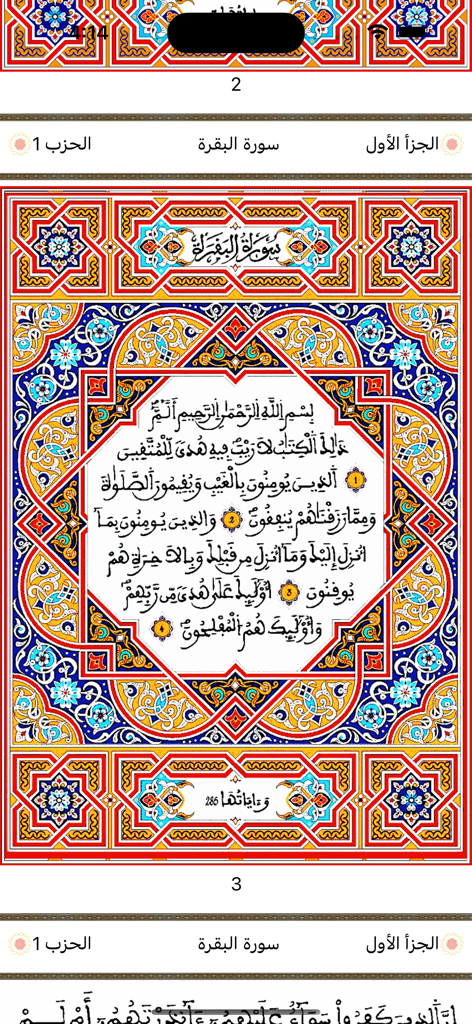 4:14
2
الجزأ الأول سورة البقرة الحزب 1
سُورَةُ البَقَرَةِ
بِسْمِ اِللَّهِ اِلرَّحْمَٰنِ اِلرَّحِيمِ أَلَٓمِّٓ
ذَٰلِكَ اَلْكِتَٰبُ لَا رَيْبَۖ فِيهِ هُدىٗ لِّلْمُتَّقِينَ
1 اَلذِينَ يُومِنُونَ بِالْغَيْبِ وَيُقِيمُونَ اَلصَّلَوٰةَ
وَمِمَّا رَزَقْنَٰهُمْ يُنفِقُونَۖ 2 وَالذِينَ يُومِنُونَ بِمَآ
أُنزِلَ إِلَيْكَ وَمَآ أُنزِلَ مِن قَبْلِكَ وَبِالَاخِرَةِ هُمْ
يُوقِنُونَۖ 3 أُوْلَٰٓئِكَ عَلَىٰ هُدىٗ مِّن رَّبِّهِمْۖ
وَأُوْلَٰٓئِكَ هُمُ الْمُفْلِحُونَۖ 4
وَءَايَاتُهَا 286
3
الجزأ الأول سورة البقرة الحزب 1
إِنَّ اَلذِينَ كَفَرُواْ سَوَآءٌ عَلَيْهِمُۥٓ ءَآنذَرْتَهُمُۥٓ أَمْ لَمْ